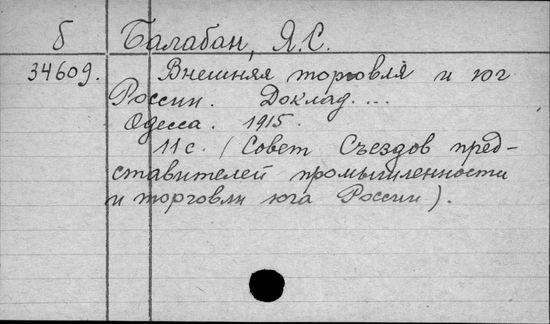 б Балабан, Я.С.
34609. Внешняя торговля и юг
России. Доклад. ...
Одесса. 1915.
11 с. (Совет Съездов пред-
ставителей промышленности
и торговли юга России).